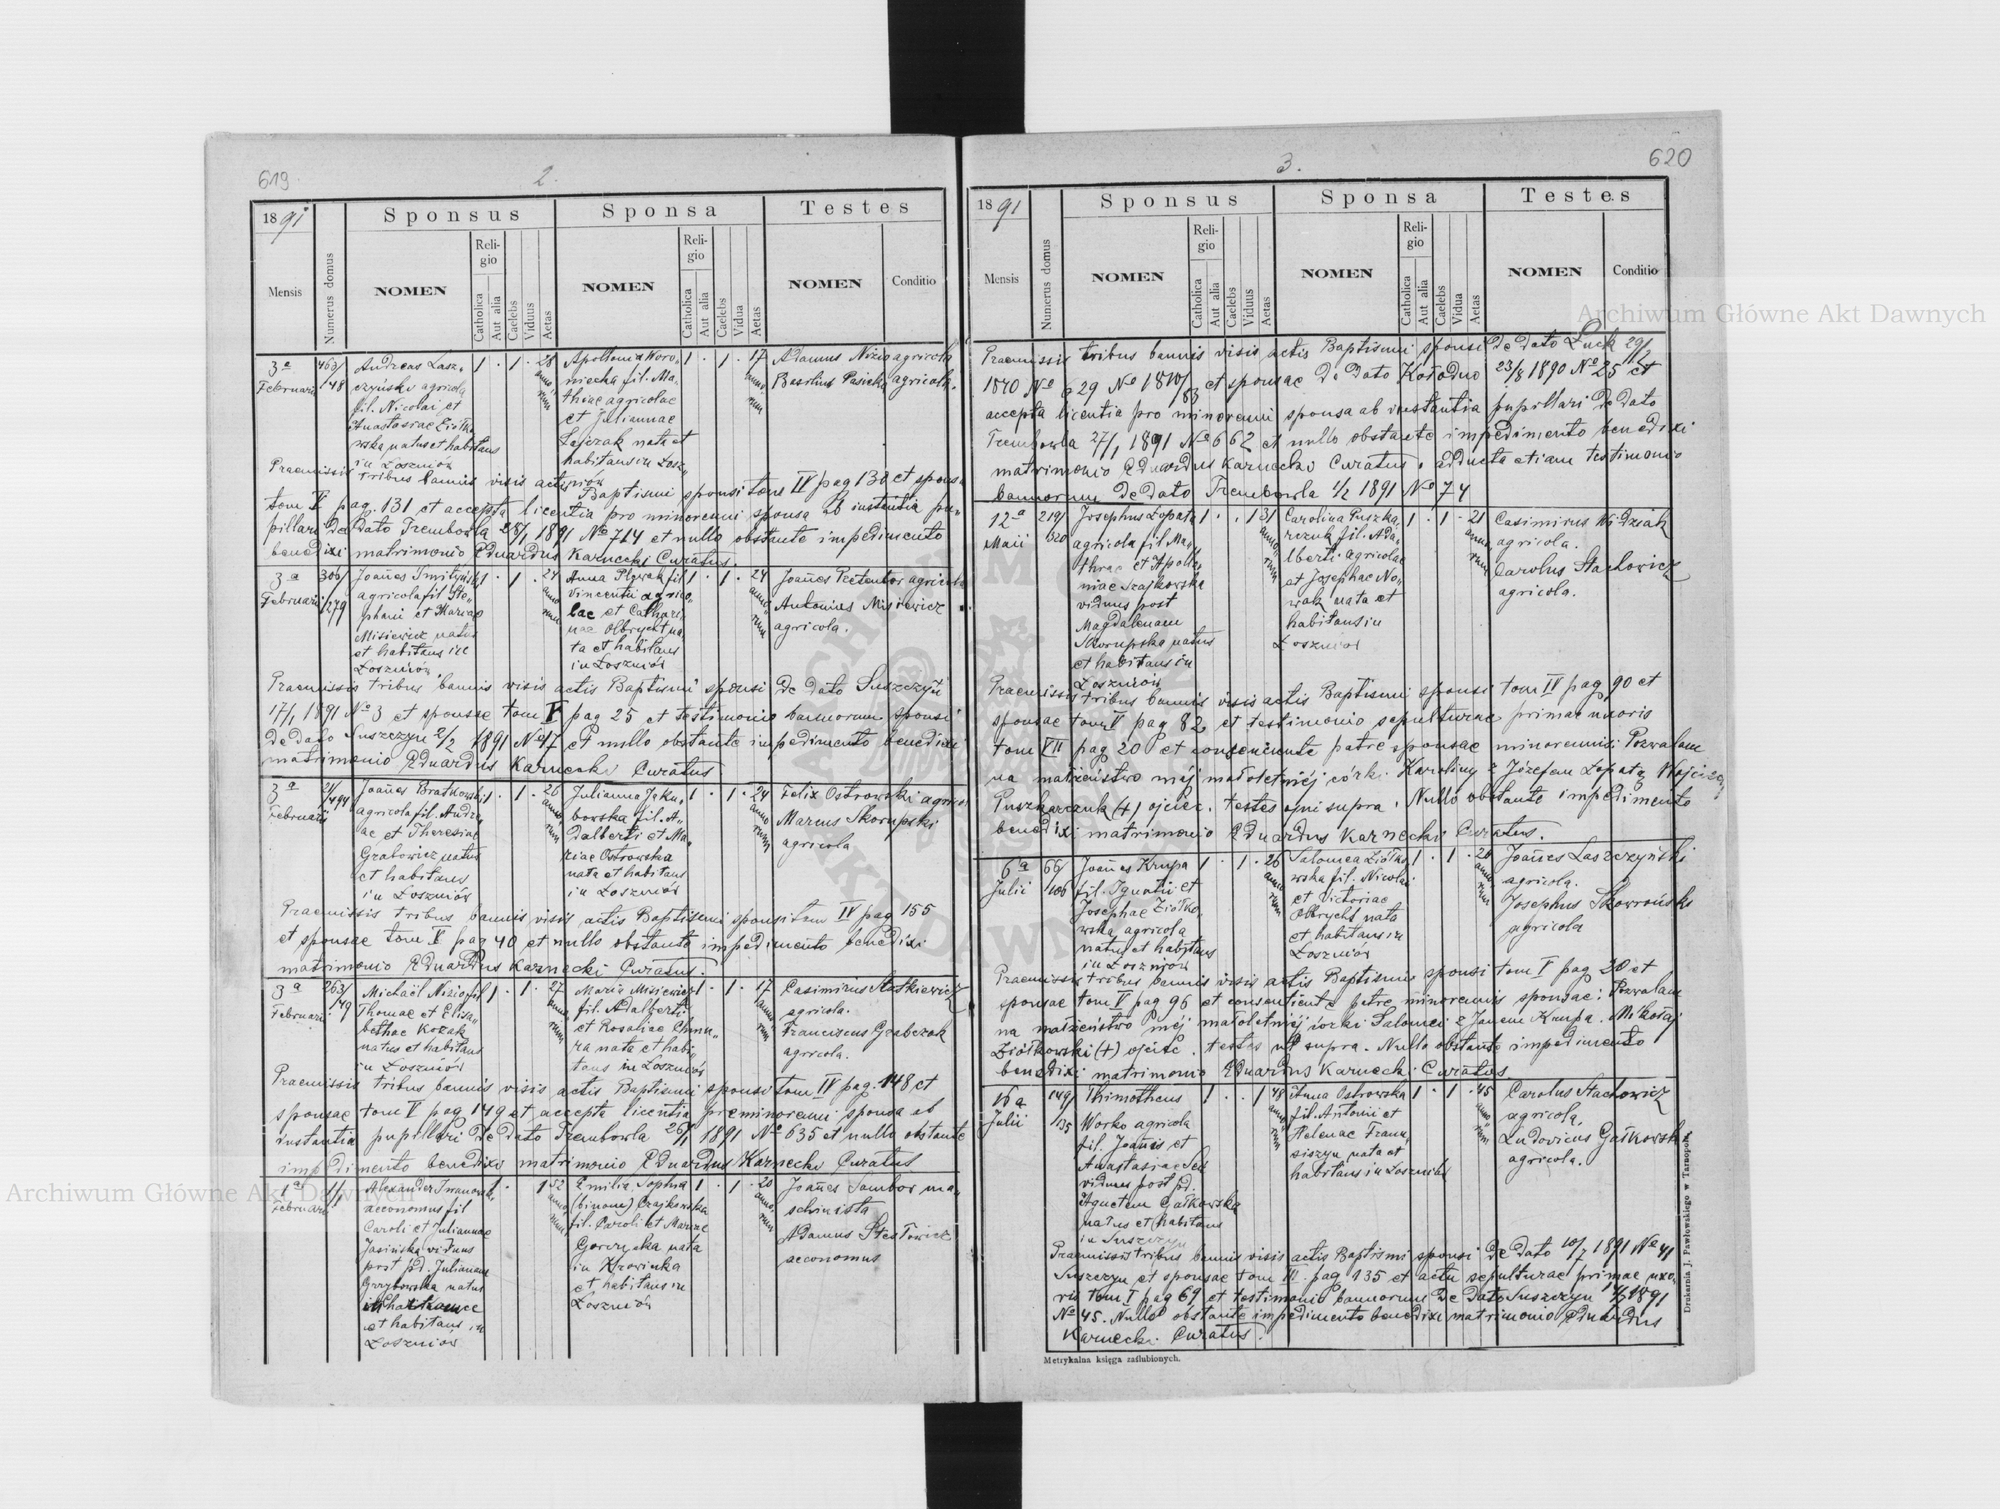 619.
2.
1891
Sponsus
Sponsa
Testes
Mensis
Numerus domus
NOMEN
Religio
Catholica
Aut alia
Caelebs
Viduus
Aetas
NOMEN
Religio
Catholica
Aut alia
Caelebs
Vidua
Aetas
NOMEN
Conditio
3a
Februarii
463/
148
Andreas Lasz-
czyński agricola
fil. Nicolai et
Anastasiae Ziółko
wska natus et habitans
in Łoszniów
1 . 1 . 28
annorum
Apollonia Woro-
niecka fil. Ma-
thiae agricolae
et Juliannae
Lejczak nata et
habitans in Łosz-
niów
1 . 1 . 17
annorum
Adamus Nizio agricola
Basilius Pasieka agricola.
Praemissis tribus bannis visis actis Baptismi sponsi tom IV pag 130 et sponsae
tom V pag. 131 et accepta licentia pro minorenni sponsa ab instantia pu-
pillari De Dato Trembowla 28/1 1891 No 714 et nullo obstante impedimento
benedixi matrimonio Eduardus Karnecki Curatus.
3a
Februarii
306/
279
Joañes
agricola fil Ste-
phani et Mariae
Misiewicz natus
et habitans in
Łoszniów
1 . 1 . 24
annorum
Anna fil
Vincentii agrico-
lae et Cathari-
nae Olbrycht na-
ta et habitans
in Łoszniów
1 . 1 . 24
annorum
Joañes Pretentor agricola
Antonius Misiewicz
agricola.
Praemissis tribus bannis visis actis Baptismi sponsi De Dato Suszczyn
17/1 1891 No 3 et sponsae tom V pag 25 et testimonio bannorum sponsi
De dato Suszczyn 2/2 1891 No 47 et nullo obstante impedimento benedixi
matrimonio Eduardus Karnecki Curatus
3a
Februarii
21/
494
Joañes Bratkowski
agricola fil. Andre-
ae et Theresiae
Grabowicz natus
et habitans
in Łoszniów
1 . 1 . 26
annorum
Julianna Jaku-
bowska fil. A-
dalberti et Ma-
riae Ostrowska
nata et habitans
in Łoszniów
1 . 1 . 24
annorum
Felix Ostrowski agricola
Marcus Skorupski
agricola
Praemissis tribus bannis visis actis Baptismi sponsi tom IV pag 155
et sponsae tom V pag 40 et nullo obstante impedimento benedixi
matrimonio Eduardus Karnecki Curatus.
3a
Februarii
263/
49
Michaël Nizio fil
Thomae et Elisa-
bethae Kozak
natus et habitans
in Łoszniów
1 . 1 . 27
annorum
Maria Misiewicz
fil. Adalberti
et Rosaliae Chmu-
ra nata et habi-
tans in Łoszniów
1 . 1 . 17
annorum
Casimirus Statkiewicz
agricola.
Franciscus Grabczak
agricola.
Praemissis tribus bannis visis actis Baptismi sponsi tom IV pag. 148 et
sponsae tom V pag 149 et accepta licentia pro minorenni sponsa ab
instantia pupillari De Dato Trembowla 26/1 1891 No 635 et nullo obstante
impedimento benedixi matrimonio Eduardus Karnecki Curatus
Februarii
1/1
Alexander Iwanowski
oeconomus fil
Caroli et Juliannae
Jasińska viduus
post pd. Juliannam
Grzybowska natus
et habitans in
Łoszniów
1 . . 1 52
annorum
Emilia Sophia
(binom) Czajkowska
fil. Caroli et Mariae
Gorczycka nata
in Krowinka
et habitans in
Łoszniów
1 . 1 . 20
annorum
Joañes Sambor ma-
schinista
Adamus
oeconomus
620
3.
1891
Sponsus
Sponsa
Testes
Mensis
Numerus domus
NOMEN
Religio
Catholica
Aut alia
Caelebs
Viduus
Aetas
NOMEN
Religio
Catholica
Aut alia
Caelebs
Vidua
Aetas
NOMEN
Conditio
Praemissis tribus bannis visis actis Baptismi sponsi De Dato Łuck 29/12
1890 No 629 et sponsae De Dato Kołodno 23/8 1890 No 25 et
accepta licentia pro minorenni sponsa ab instantia pupillari De Dato
Trembowla 27/1 1891 No 662 et nullo obstante impedimento benedixi
matrimonio Eduardus Karnecki Curatus. adducta etiam testimonio
bannorum De Dato Trembowla 1/2 1891 No 74
12a
Maii
219/
320
Josephus Łopata
agricola fil Ma-
thiae et Apollo-
niae Szajkowska
viduus post
Magdalenam
Skorupska natus
et habitans in
Łoszniów
1 . . 1 31
annorum
Carolina Puszka-
rczuk fil. Ada-
lberti agricolae
et Josephae No-
wak nata et
habitans in
Łoszniów
1 . 1 . 21
annorum
Casimirus Widziak
agricola.
Carolus Stachowicz
agricola.
Praemissis tribus bannis visis actis Baptismi sponsi tom IV pag 90 et
sponsae tom V pag 82 et testimonio sepulturae primae uxoris
tom VII pag 20 et conseniente patre sponsae minorennis: Pozwalam
na małżeństwo mój małoletniéj córki Karoliny z Józefem Łopatą Wojciech
Puszkarczuk (+) ojciec. testes qui supra. Nullo obstante impedimento
benedixi matrimonio Eduardus Karnecki Curatus.
6a
Julii
66/
106
Joañes Krupa
fil. Ignatii et
Josephae Ziółko-
wska agricola
natus et habitans
in Łoszniów
1 . 1 . 26
annorum
Salomea Ziółko-
wska fil. Nicolai
et Victoriae
Olbrycht nata
et habitans in
Łoszniów
1 . 1 . 20
annorum
Joañes Laszczyński
agricola.
Josephus Skowroński
agricola
Praemissis tribus bannis visis actis Baptismi sponsi tom V pag 20 et
sponsae tom V pag 96 et consentiente patre minorennis sponsae: Pozwalam
na małżeństwo mój małoletniéj córki Salomei z Janem Krupa. Mikołaj
Ziółkowski (+) ojciec. testes ut supra. Nullo obstante impedimento
benedixi matrimonio Eduardus Karnecki Curatus
16a
Julii
149/
135
Thimotheus
Worko agricola
fil. Joañis et
Anastasiae
viduus post pd.
Agnetem Gałkowska
natus et habitans
in Suszczyn
1 . . 1 48
annorum
Anna Ostrowska
fil. Antonii et
Helenae Fran-
ciszyn nata et
habitans in Łoszniów
1 . 1 . 45
annorum
Carolus Stachowicz
agricola
Ludovicus Gałkowski
agricola.
Praemissis tribus bannis visis actis Baptismi sponsi De Dato 10/7 1891 No 41
Suszczyn et sponsae tom III pag 135 et actu sepulturae primae uxo-
ris tom I pag 69 et testimonio bannorum De Dato Suszczyn 1891
No 45. Nullo obstante impedimento benedixi matrimonio Eduardus
Karnecki Curatus.
Metrykalna księga zaślubionych.
Drukarnia J. Pawłowskiego w Tarnopolu.
Archiwum Główne Akt Dawnych
Archiwum Główne Akt Dawnych
ARCHIWUM GŁÓWNE AKT DAWNYCH